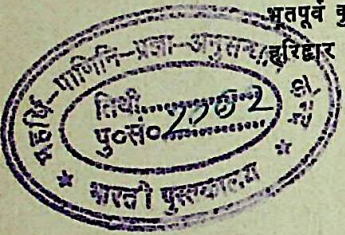 भूतपूर्व कु
हरिद्वार
महर्षि-पाणिनि-प्रज्ञा-
तिथी..............
पु०सं०
भारती पुस्तकालय